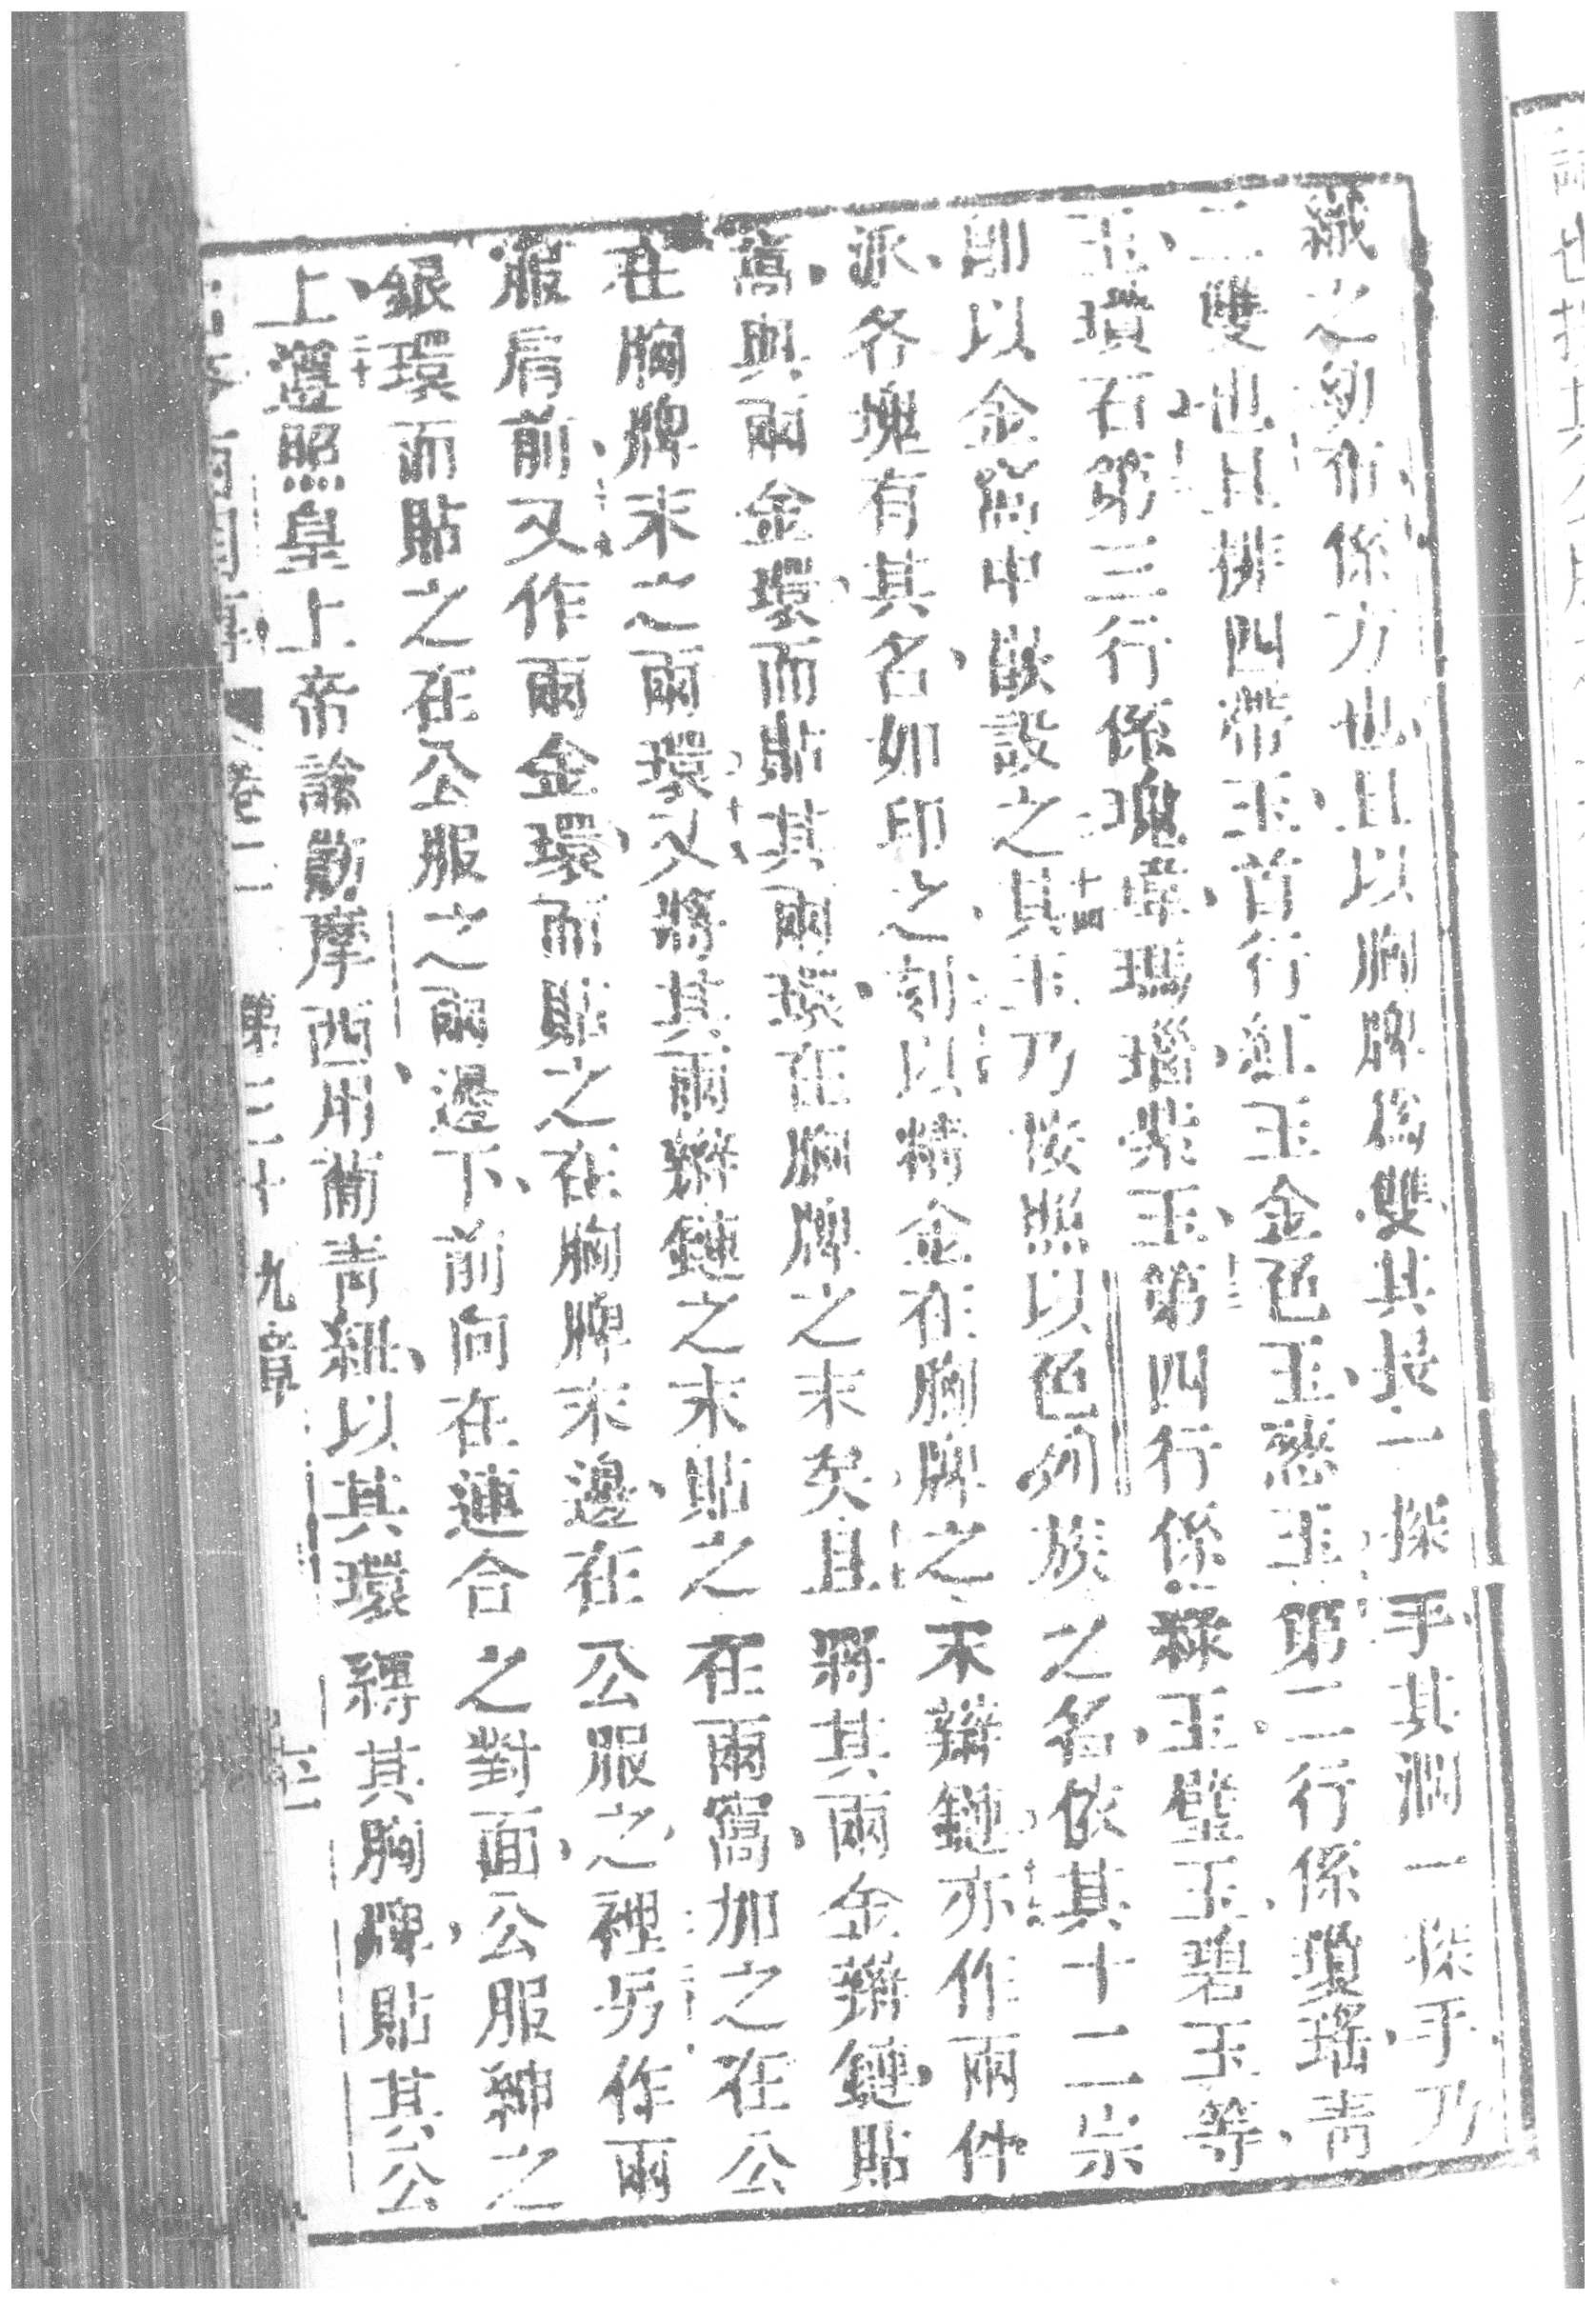 織之幼布係方也且以胸牌為雙其長一探手其濶一探手乃
二雙也且排四帶玉首行紅玉金色玉葱玉第二行係瓊瑤青
玉璜石第三行係瑰瑋瑪瑙紫玉第四行係綠玉璧玉碧玉等
即以金窩中嵌設之其玉乃按照以色列族之名依其十二宗
派各塊有其名如印之刻以精金在胸牌之末辮鏈亦作兩件
窩與兩金環而貼其兩環在胸牌之末矣且將其兩金辮鏈貼
在胸牌末之兩環又將其兩辮鏈之末貼之在兩窩加之在公
服肩前又作兩金環而貼之在胸牌末邊在公服之裡另作兩
銀環而貼之在公服之兩邊下前向在連合之對面公服紳之
上遵照皇上帝諭飭摩西用葡青紐以其環縛其胸牌貼其公
卷二 第三十九章